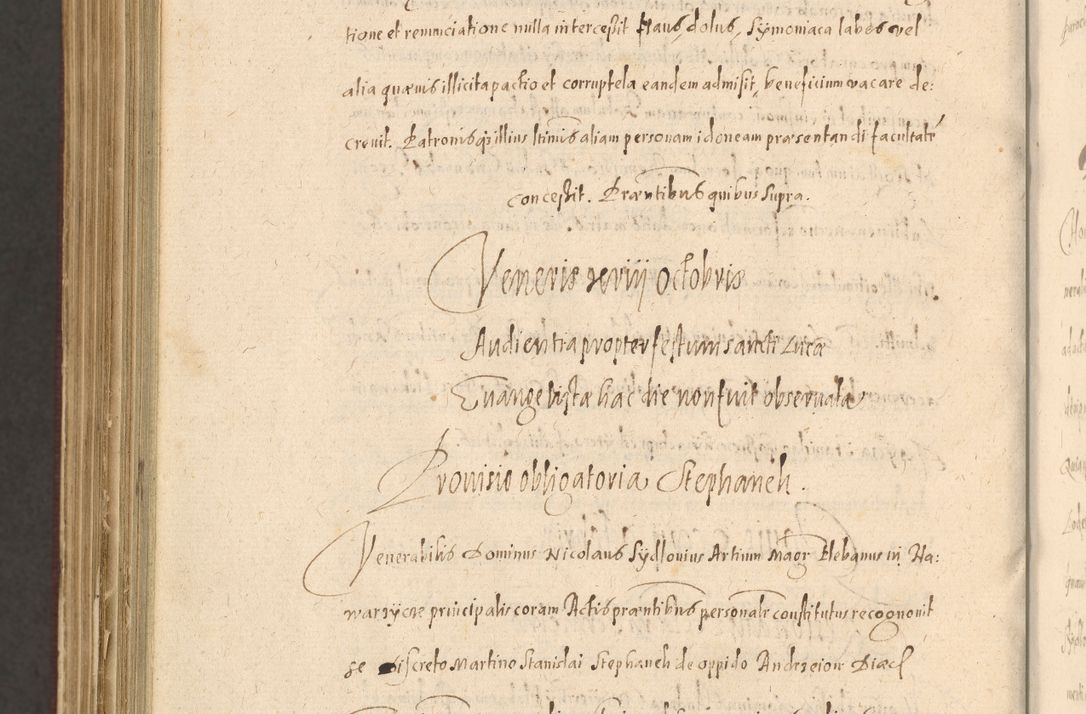 tione et renunciatione nulla intercessit fraus, dolus, Symoniaca labes vel
alia quævis illicita pactio et corruptela eandem admisit, beneficium vacare de:
crevit. Patronisq; illius ltimis aliam personam idoneam præsentandi facultatē
concessit. Præntibus quibus supra.
Veneris xviij Octobris
Audientia propter festum sancti Lucæ
Evangelistæ hac die non fuit observata
Provisio obligatoria Stephaneli.
Venerabilis Dominus Nicolaus Sydlovius Artium Magr Plebanus in Na:
warzycze principalis coram Actis præntibus personalr constitutus recognovit
se Discreto Martino Stanislai Stephaneli de oppido Andrzeiow Diæc